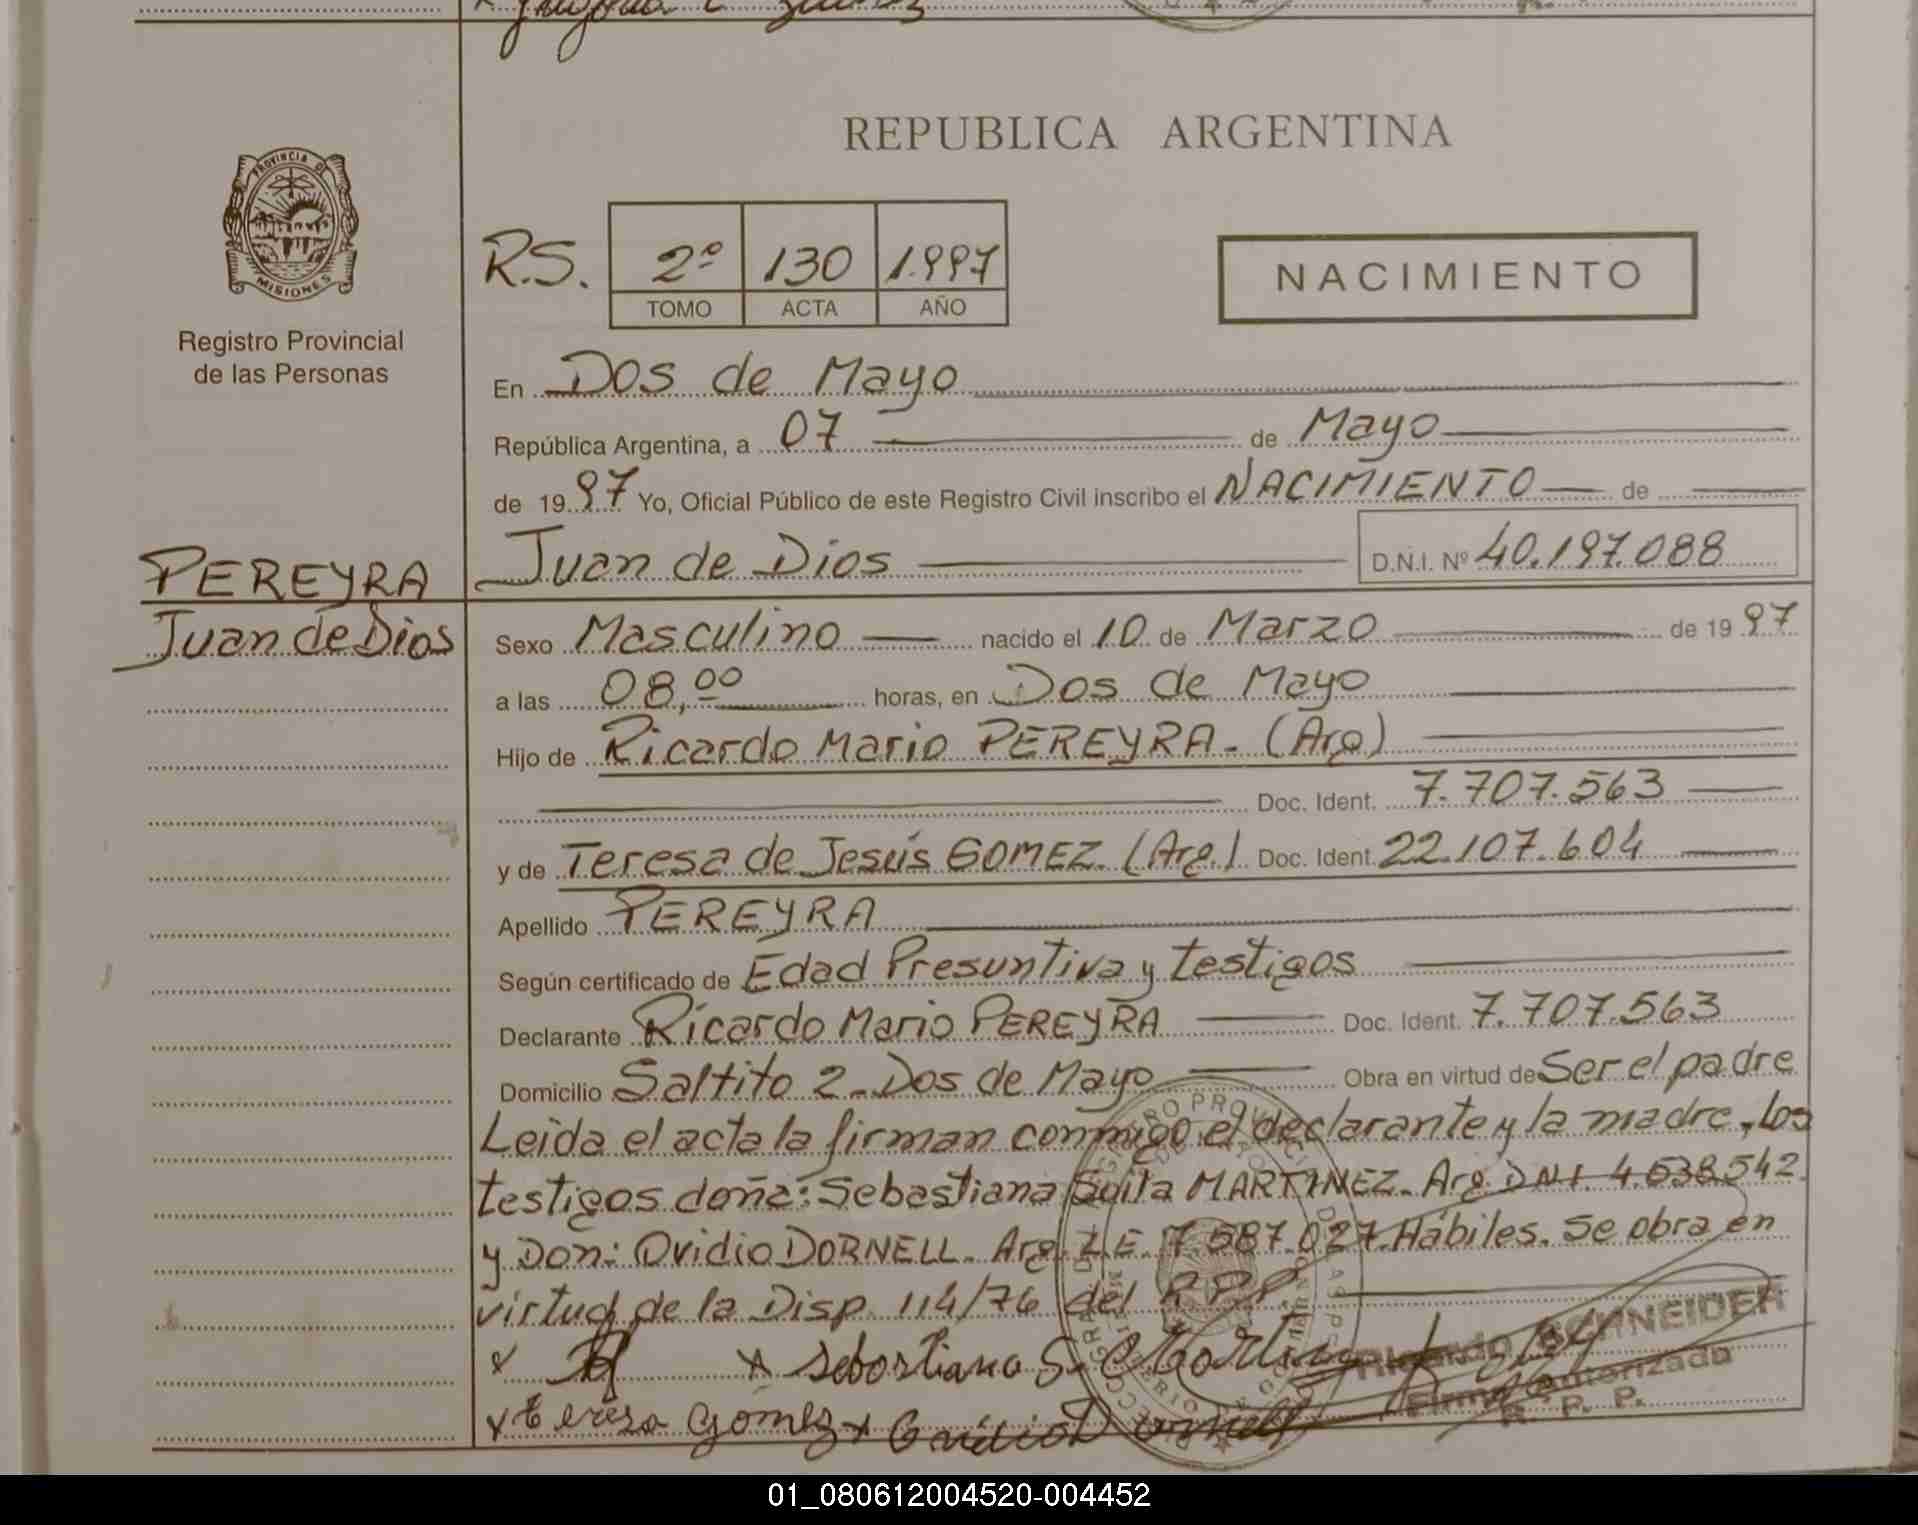 REPUBLICA ARGENTINA
PROVINCIA DE
MISIONES
Registro Provincial
de las Personas
R.S.
2º 130 1.997
TOMO ACTA AÑO
NACIMIENTO
En Dos de Mayo
República Argentina, a 07 de Mayo
de 1997 Yo, Oficial Público de este Registro Civil inscribo el NACIMIENTO de
PEREYRA Juan de Dios D.N.I. Nº 40.197.088
Juan de Dios Sexo Masculino nacido el 10 de Marzo de 1997
a las 08,00 horas, en Dos de Mayo
Hijo de Ricardo Mario PEREYRA. (Arg)
Doc. Ident. 7.707.563
y de Teresa de Jesús GOMEZ. (Arg.) Doc. Ident. 22.107.604
Apellido PEREYRA
Según certificado de Edad Presuntiva y testigos
Declarante Ricardo Mario PEREYRA Doc. Ident. 7.707.563
Domicilio Saltito 2 - Dos de Mayo Obra en virtud de Ser el padre
Leida el acta la firman conmigo el declarante y la madre, los
testigos doña: Sebastiana MARTINEZ. Arg. DNI. 4.638.542
y Don: Ovidio DORNELL. Arg. L.E. 7.587.027. Hábiles. Se obra en
virtud de la Disp. 114/76 del R.P.P.
x x Sebastiana S.
Ricardo SCHNEIDER
Firma Autorizada
R. P. P.
x teresa Gómez x Ovidio Dornell
01_080612004520-004452